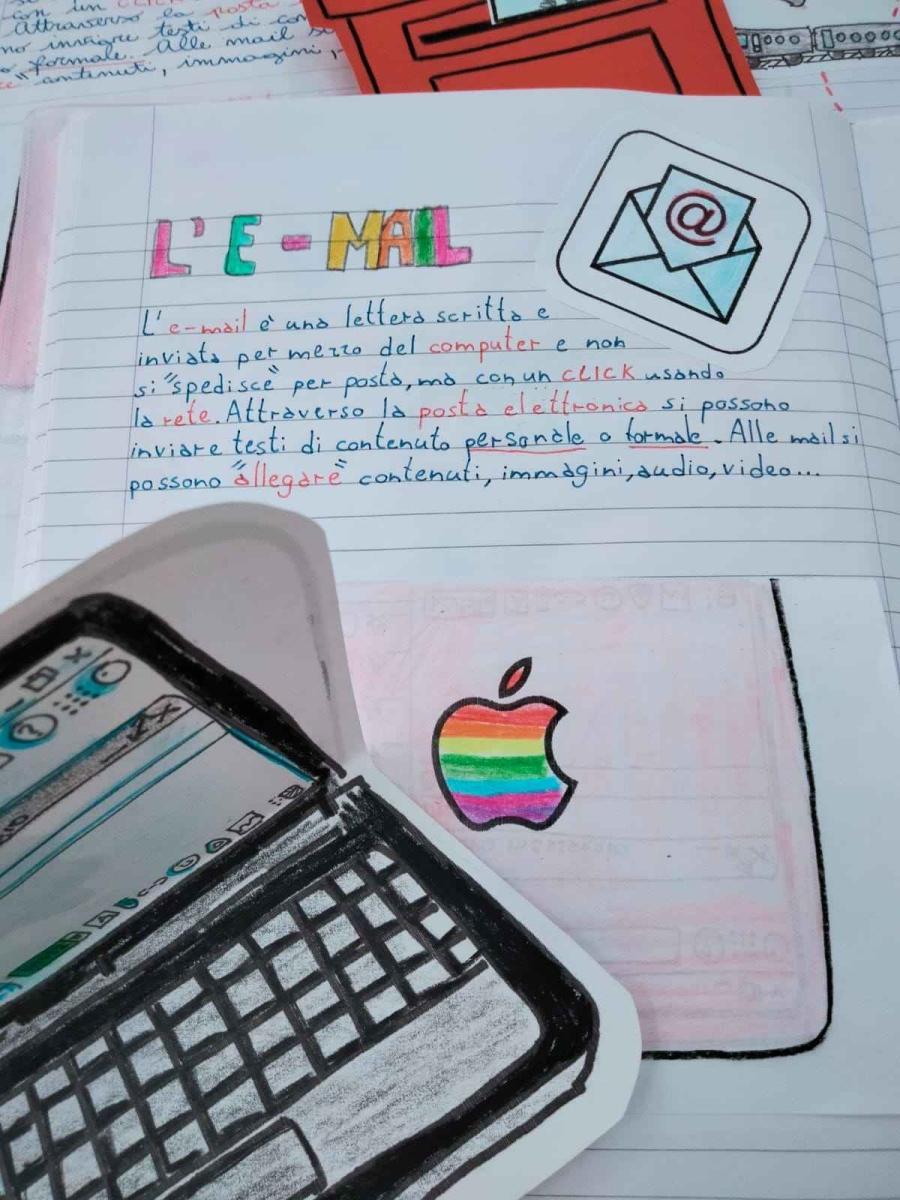 con un CLICK
Attraverso la posta
no inviare testi di con
o formale. Alle mail si
contenuti, immagini,
L' E-MAIL
@
L'e-mail è una lettera scritta e
inviata per mezzo del computer e non
si "spedisce" per posta, ma con un CLICK usando
la rete. Attraverso la posta elettronica si possono
inviare testi di contenuto personale o formale. Alle mail si
possono "allegare" contenuti, immagini, audio, video...